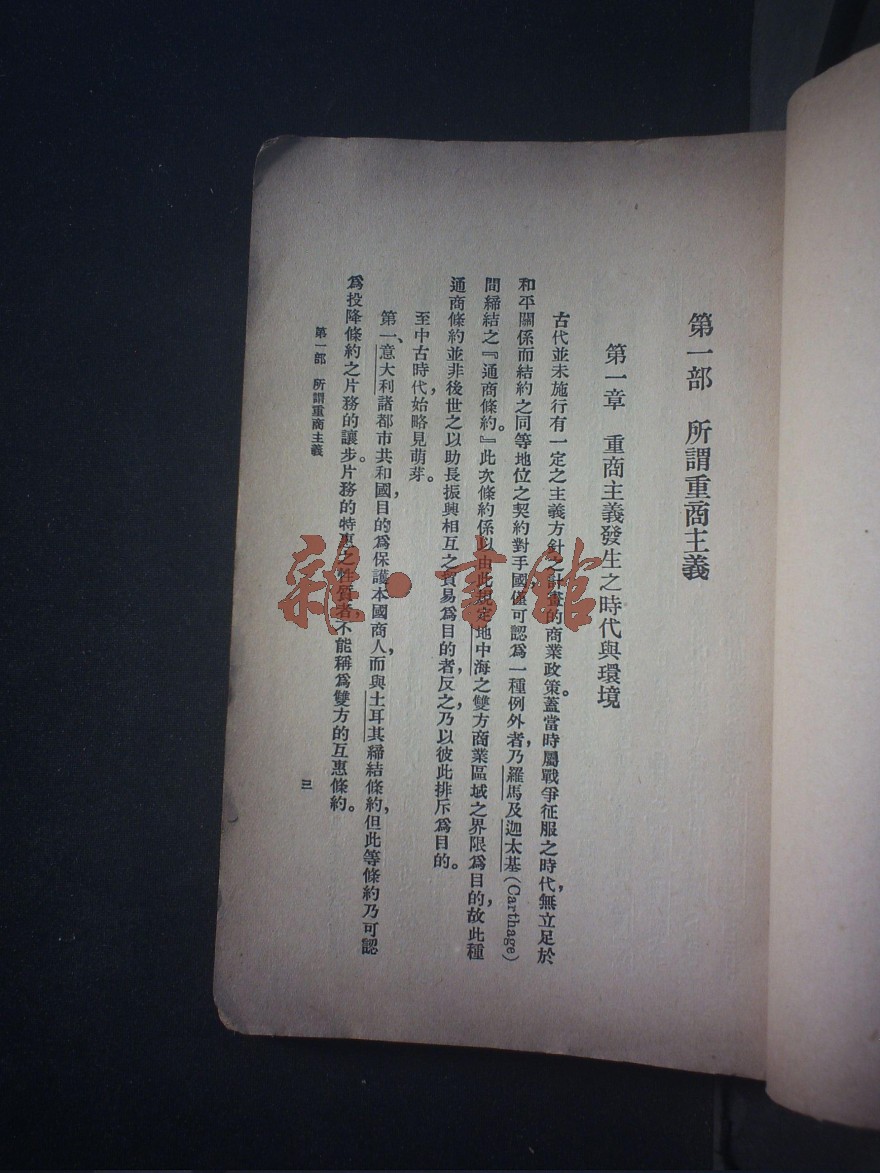 第一部　所謂重商主義
第一章　重商主義發生之時代與環境
古代並未施行有一定之主義方針之計畫的商業政策。蓋當時屬戰爭征服之時代，無立足於
和平關係而結約之同等地位之契約對手國，僅可認爲一種例外者，乃羅馬及迦太基（Carthage）
間締結之『通商條約。』此次條約係以由此規定地中海之雙方商業區域之界限爲目的，故此種
通商條約並非後世之以助長振興相互之貿易爲目的者，反之，乃以彼此排斥爲目的。
至中古時代，始略見萌芽。
第一、意大利諸都市共和國，目的爲保護本國商人，而與土耳其締結條約，但此等條約乃可認
爲投降條約之片務的讓步。片務的特惠之性質者，不能稱爲雙方的互惠條約。
第一部　所謂重商主義
三
雜·書館